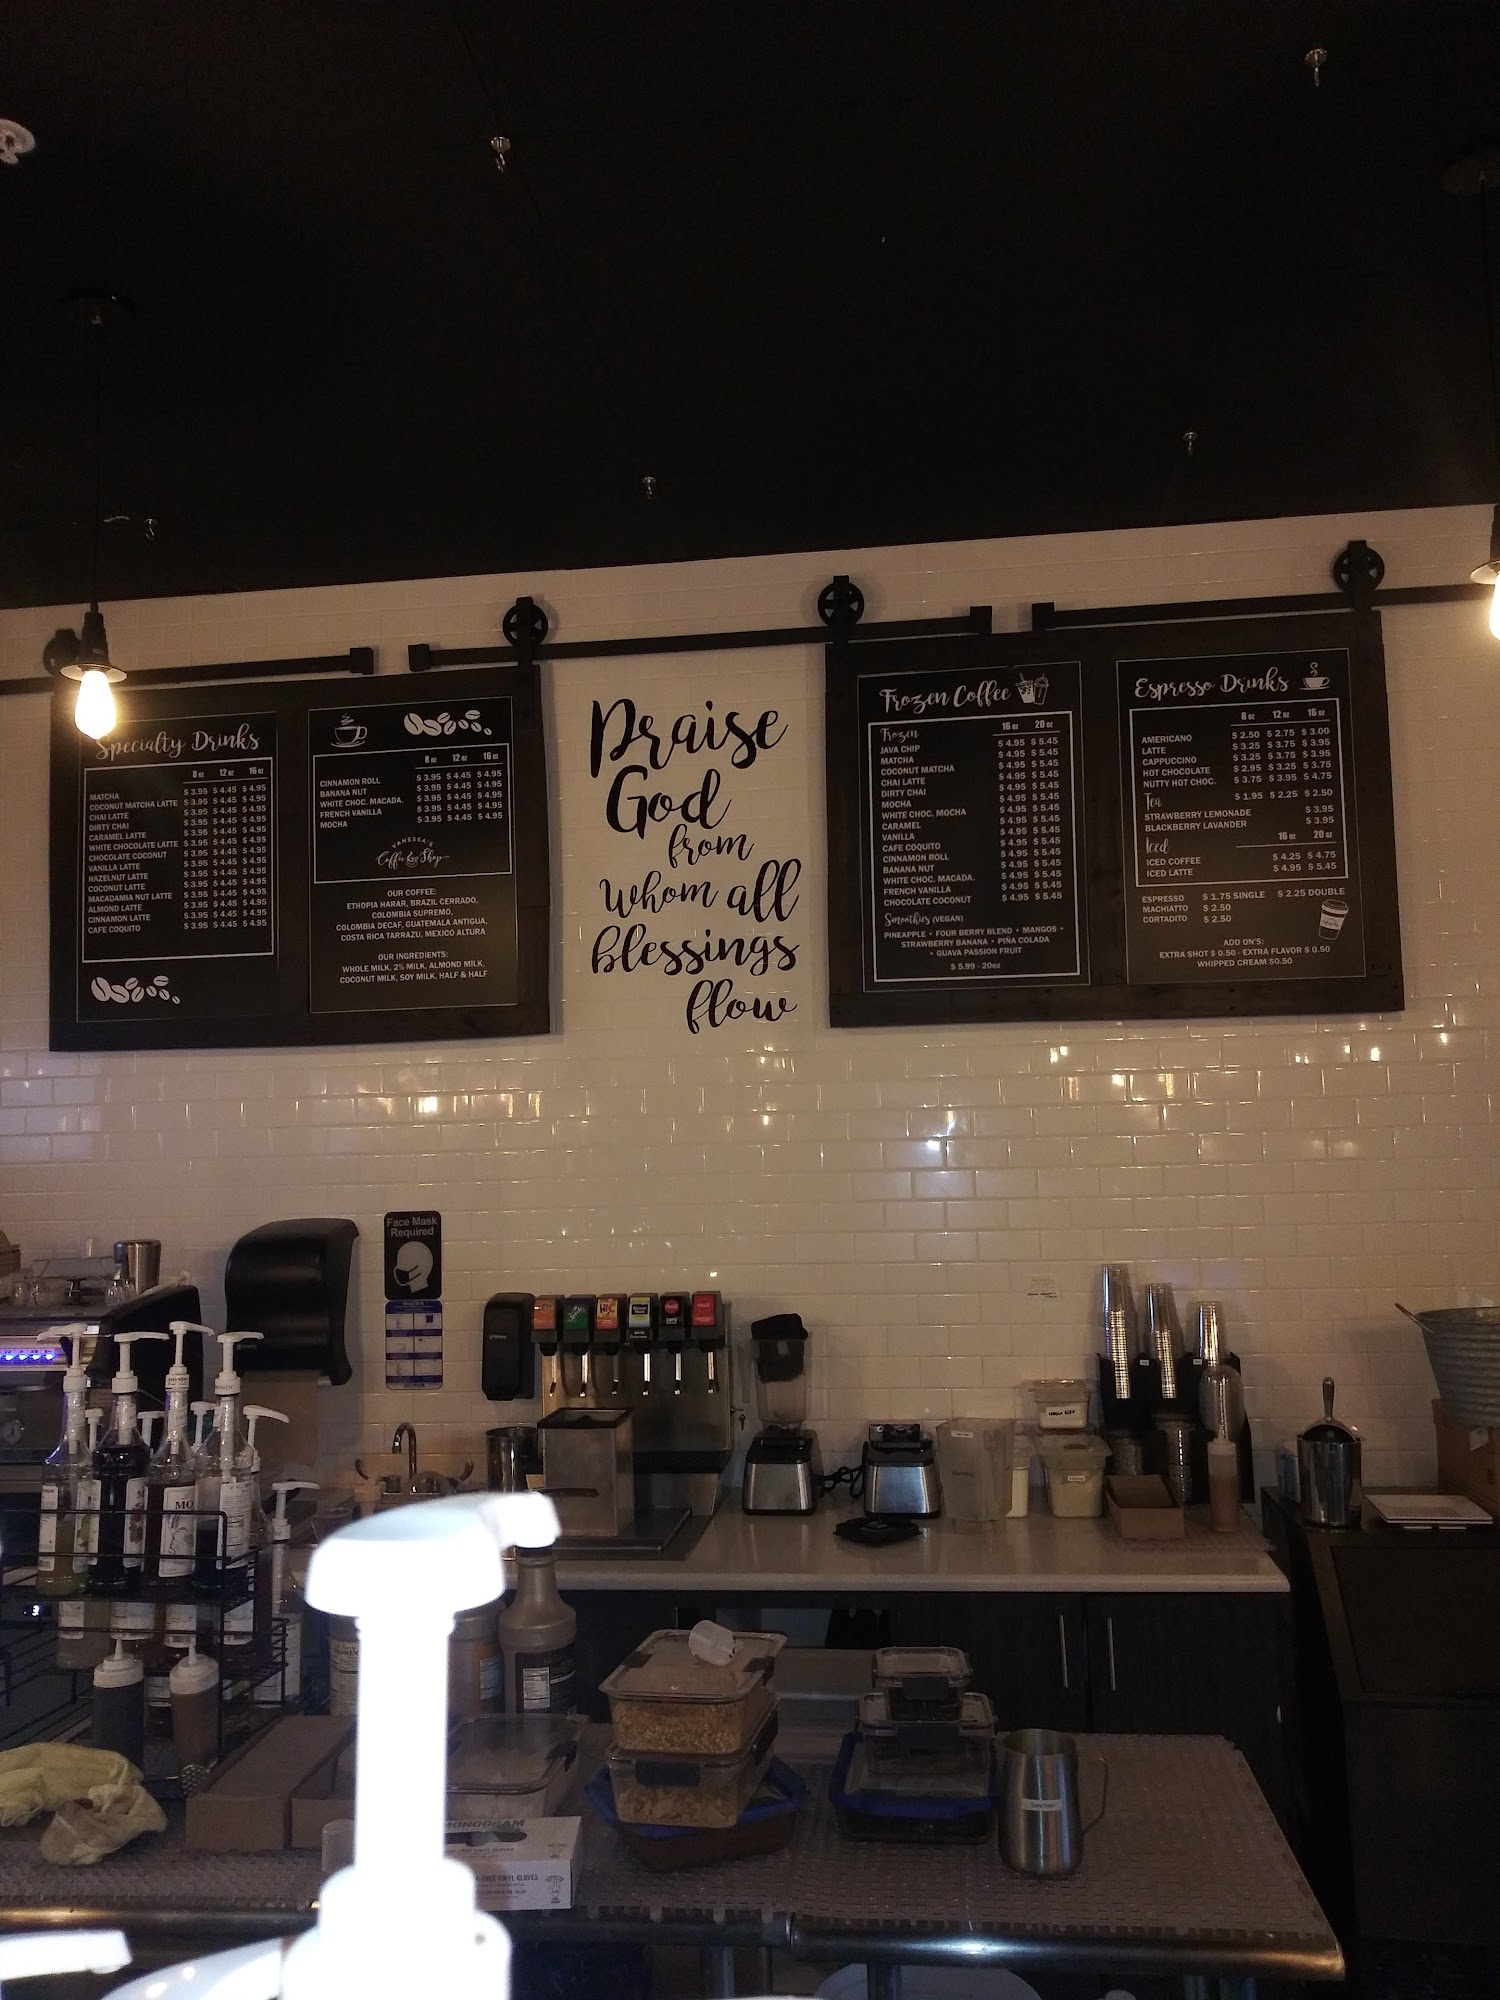 Specialty Drinks
8 oz 12 oz 16 oz
MATCHA $ 3.95 $ 4.45 $ 4.95
COCONUT MATCHA LATTE $ 3.95 $ 4.45 $ 4.95
CHAI LATTE $ 3.95 $ 4.45 $ 4.95
DIRTY CHAI $ 3.95 $ 4.45 $ 4.95
CARAMEL LATTE $ 3.95 $ 4.45 $ 4.95
WHITE CHOCOLATE LATTE $ 3.95 $ 4.45 $ 4.95
CHOCOLATE COCONUT $ 3.95 $ 4.45 $ 4.95
VANILLA LATTE $ 3.95 $ 4.45 $ 4.95
HAZELNUT LATTE $ 3.95 $ 4.45 $ 4.95
COCONUT LATTE $ 3.95 $ 4.45 $ 4.95
MACADAMIA NUT LATTE $ 3.95 $ 4.45 $ 4.95
ALMOND LATTE $ 3.95 $ 4.45 $ 4.95
CINNAMON LATTE $ 3.95 $ 4.45 $ 4.95
CAFE COQUITO $ 3.95 $ 4.45 $ 4.95
8 oz 12 oz 16 oz
CINNAMON ROLL $ 3.95 $ 4.45 $ 4.95
BANANA NUT $ 3.95 $ 4.45 $ 4.95
WHITE CHOC. MACADA. $ 3.95 $ 4.45 $ 4.95
FRENCH VANILLA $ 3.95 $ 4.45 $ 4.95
MOCHA $ 3.95 $ 4.45 $ 4.95
VANESSA'S
Coffee Shop
OUR COFFEE:
ETHOPIA HARAR, BRAZIL CERRADO,
COLOMBIA SUPREMO,
COLOMBIA DECAF, GUATEMALA ANTIGUA,
COSTA RICA TARRAZU, MEXICO ALTURA
OUR INGREDIENTS:
WHOLE MILK, 2% MILK, ALMOND MILK,
COCONUT MILK, SOY MILK, HALF & HALF
Praise
God
from
Whom all
blessings
flow
Frozen Coffee
Frozen 16 oz 20 oz
JAVA CHIP $ 4.95 $ 5.45
MATCHA $ 4.95 $ 5.45
COCONUT MATCHA $ 4.95 $ 5.45
CHAI LATTE $ 4.95 $ 5.45
DIRTY CHAI $ 4.95 $ 5.45
MOCHA $ 4.95 $ 5.45
WHITE CHOC. MOCHA $ 4.95 $ 5.45
CARAMEL $ 4.95 $ 5.45
VANILLA $ 4.95 $ 5.45
CAFE COQUITO $ 4.95 $ 5.45
CINNAMON ROLL $ 4.95 $ 5.45
BANANA NUT $ 4.95 $ 5.45
WHITE CHOC. MACADA. $ 4.95 $ 5.45
FRENCH VANILLA $ 4.95 $ 5.45
CHOCOLATE COCONUT $ 4.95 $ 5.45
Smoothies (VEGAN)
PINEAPPLE • FOUR BERRY BLEND • MANGOS •
STRAWBERRY BANANA • PIÑA COLADA
• GUAVA PASSION FRUIT
$ 5.99 - 20oz
Espresso Drinks
8 oz 12 oz 16 oz
AMERICANO $ 2.50 $ 2.75 $ 3.00
LATTE $ 3.25 $ 3.75 $ 3.95
CAPPUCCINO $ 3.25 $ 3.75 $ 3.95
HOT CHOCOLATE $ 2.95 $ 3.25 $ 3.75
NUTTY HOT CHOC. $ 3.75 $ 3.95 $ 4.75
Tea $ 1.95 $ 2.25 $ 2.50
STRAWBERRY LEMONADE $ 3.95
BLACKBERRY LAVANDER $ 3.95
Iced 16 oz 20 oz
ICED COFFEE $ 4.25 $ 4.75
ICED LATTE $ 4.95 $ 5.45
ESPRESSO $ 1.75 SINGLE $ 2.25 DOUBLE
MACHIATTO $ 2.50
CORTADITO $ 2.50
ADD ON'S:
EXTRA SHOT $ 0.50 - EXTRA FLAVOR $ 0.50
WHIPPED CREAM $0.50
Face Mask
Required
MONOGRAM
VINYL GLOVES